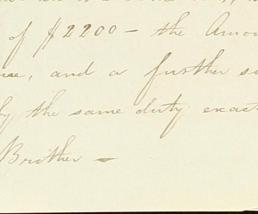 of $2200 - the Amou
and a further su
by the same duty exact
Brother -